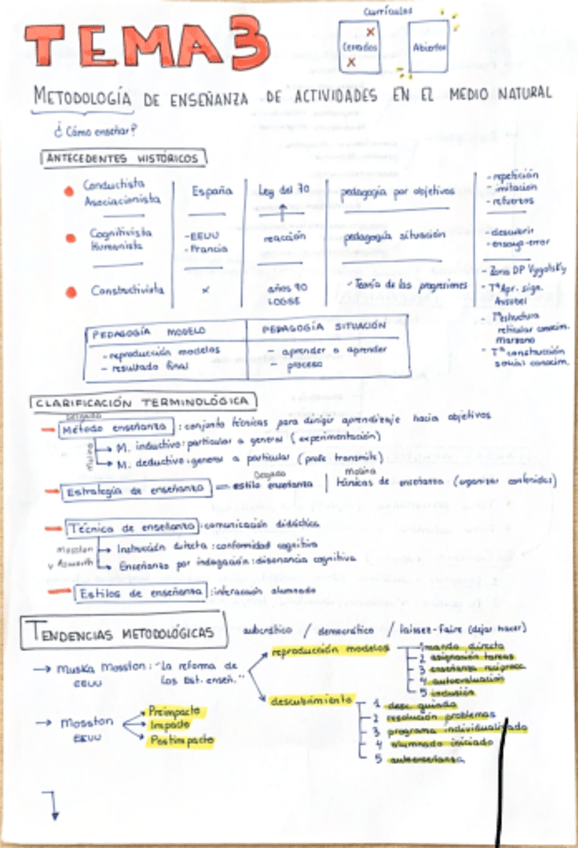 TEMA 3
Currículos
Cerrados
Abiertos
METODOLOGÍA DE ENSEÑANZA DE ACTIVIDADES EN EL MEDIO NATURAL
¿Cómo enseñar?
ANTECEDENTES HISTÓRICOS
Conductista Asociacionista
España
Ley del 70
pedagogía por objetivos
- repetición
- imitación
- refuerzos
Cognitivista Humanista
- EEUU
- Francia
reacción
pedagogía situación
- descubrir
- ensayo-error
Constructivista
x
años 90 LOGSE
- Teoría de las
- Zona DP Vygotsky
- Tª Apr. sign. Ausubel
- Tª estructura reticular conocim. Marzano
- Tª construcción social conocim.
PEDAGOGÍA MODELO
PEDAGOGÍA SITUACIÓN
- reproducción modelos
- aprender a aprender
- resultado final
- proceso
CLARIFICACIÓN TERMINOLÓGICA
Delgado
Método enseñanza: conjunto técnicas para dirigir aprendizaje hacia objetivos
Molina
M. inductivo: particular a general (experimentación)
M. deductivo: general a particular (profe transmite)
Delgado
Molina
Estrategia de enseñanza = estilo enseñanza | técnicas de enseñanza (organizar contenidos)
Técnica de enseñanza: comunicación didáctica
Mosston y Ashworth
Instrucción directa: conformidad cognitiva
Enseñanza por indagación: disonancia cognitiva
Estilos de enseñanza: interacción alumnado
TENDENCIAS METODOLÓGICAS
autocrático / democrático / laissez-faire (dejar hacer)
→ Muska Mosston: "La reforma de
EEUU
los Est. enseñ."
reproducción modelos
1 mando directo
2 asignación tareas
3 enseñanza recíproca
4 autoevaluación
5 inclusión
descubrimiento
1 desc. guiado
2 resolución problemas
3 programa individualizado
4 alumnado iniciado
5 autoenseñanza
→ Mosston
EEUU
Preimpacto
Impacto
Postimpacto